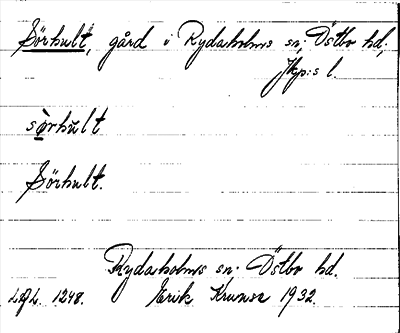 Sörhult, gård i Rydaholms sn; Östbo hd;
Jkp:s l.
sö̀rhult
Sörhult.
Rydaholms sn; Östbo hd.
1248. Erik 1932.